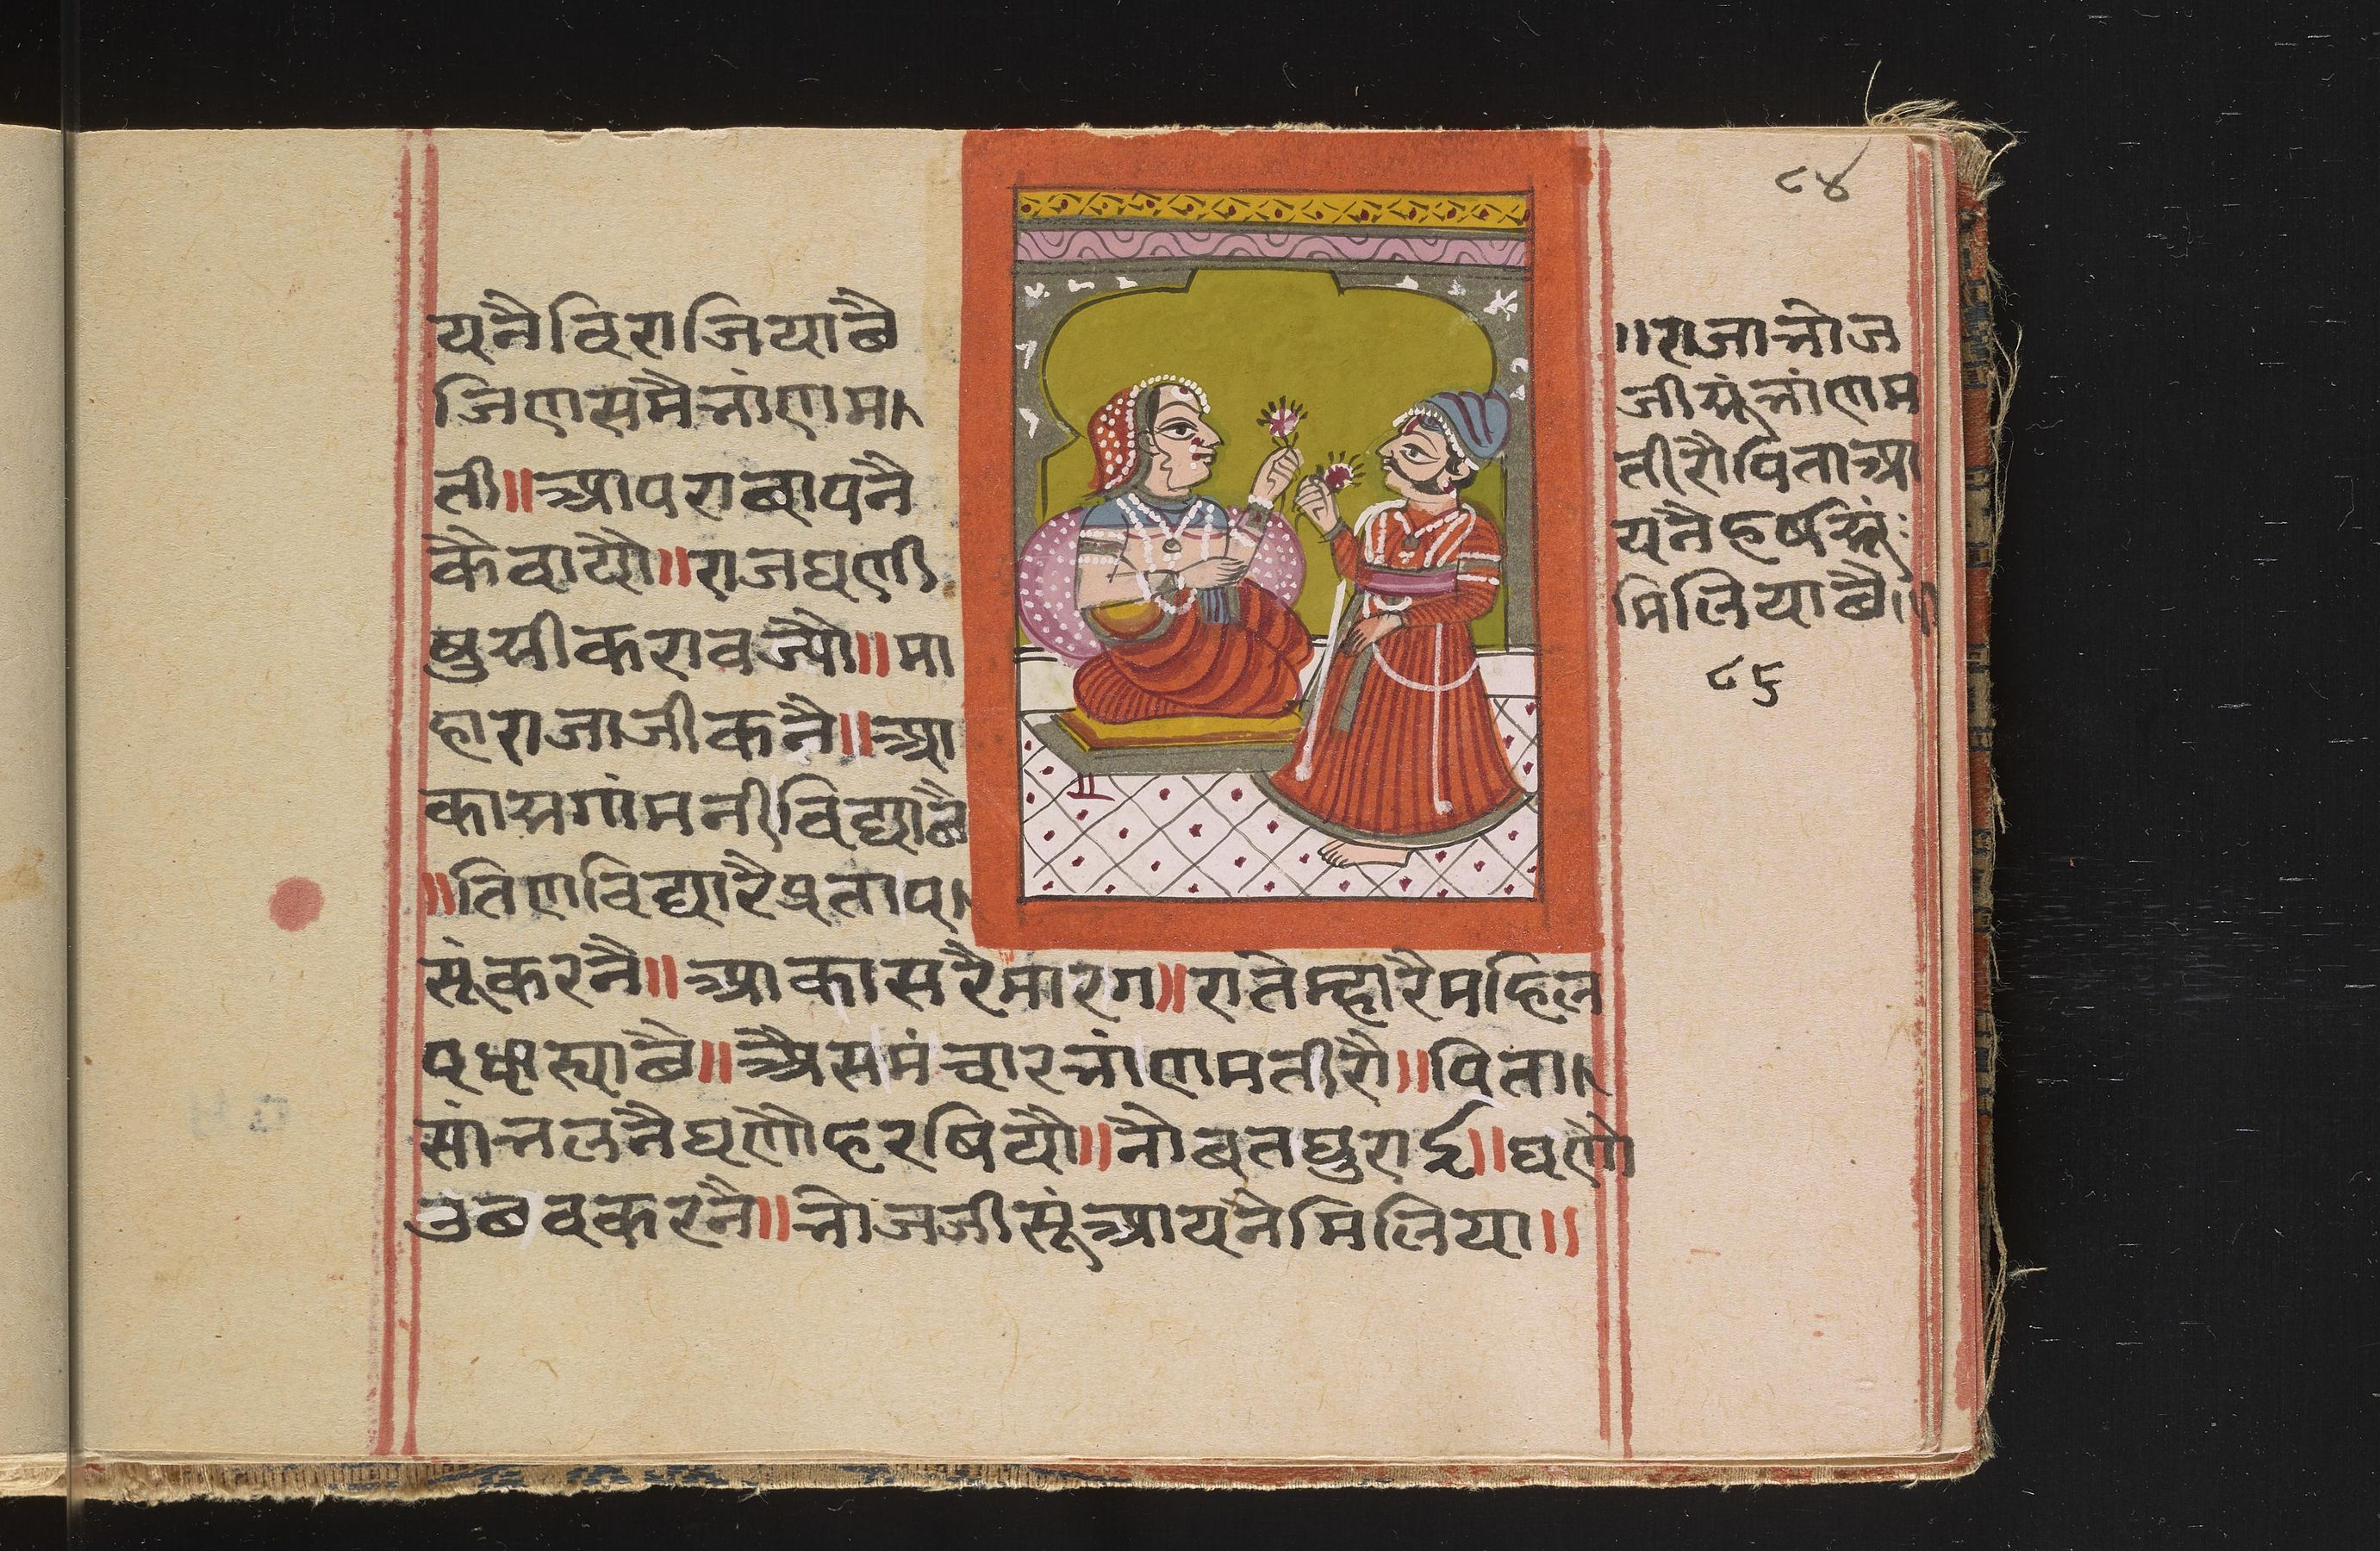 ८४
यनैविराजियाछै
जिणसमैभांणम
ती॥आपराबापनै
कैवायौ॥राजघणी
षुसीकरावज्यौ॥मा
हाराजाजीकनै॥आ
कासगांमनीविद्याछै
॥तिणविद्यारैप्रताप
सूंकरनै॥आकासरैमारग॥रातेम्हारैमहिल
पधास्याछै॥अैसमंचारभांणमतीरौ॥पिता
सांभलनैघणौहरषियौ॥नौबतघुराई॥घणौ
उछवकरनै॥भोजजीसूंआयनैमिलिया॥
॥राजाभोज
जीसूंभांणम
तीरौपिताआ
यनैहर्षसूं
मिलियाछै॥
८६